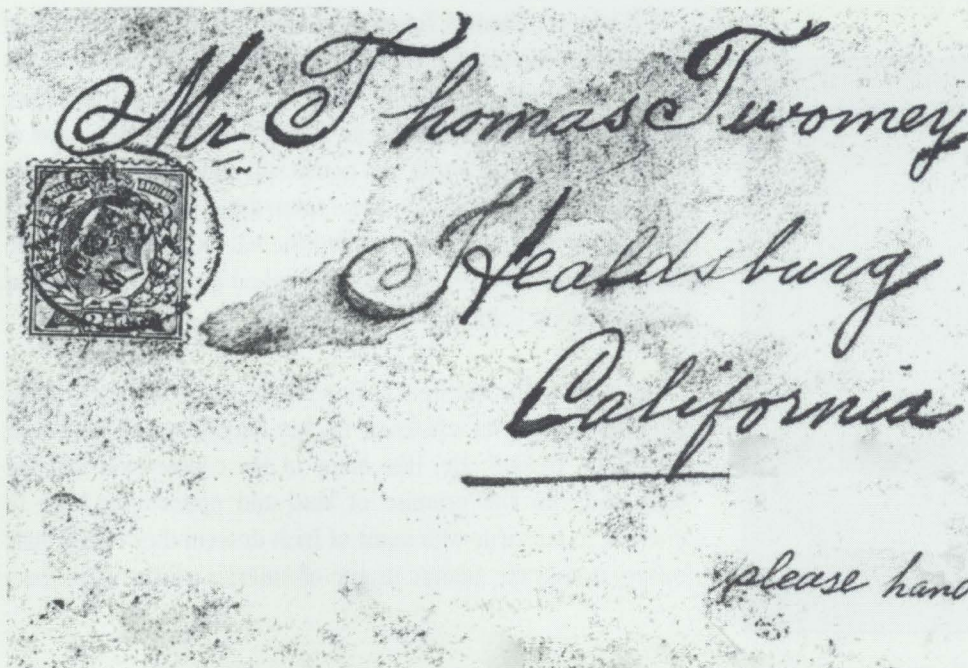 Mr Thomas Twomey
Healdsburg
California
please hand